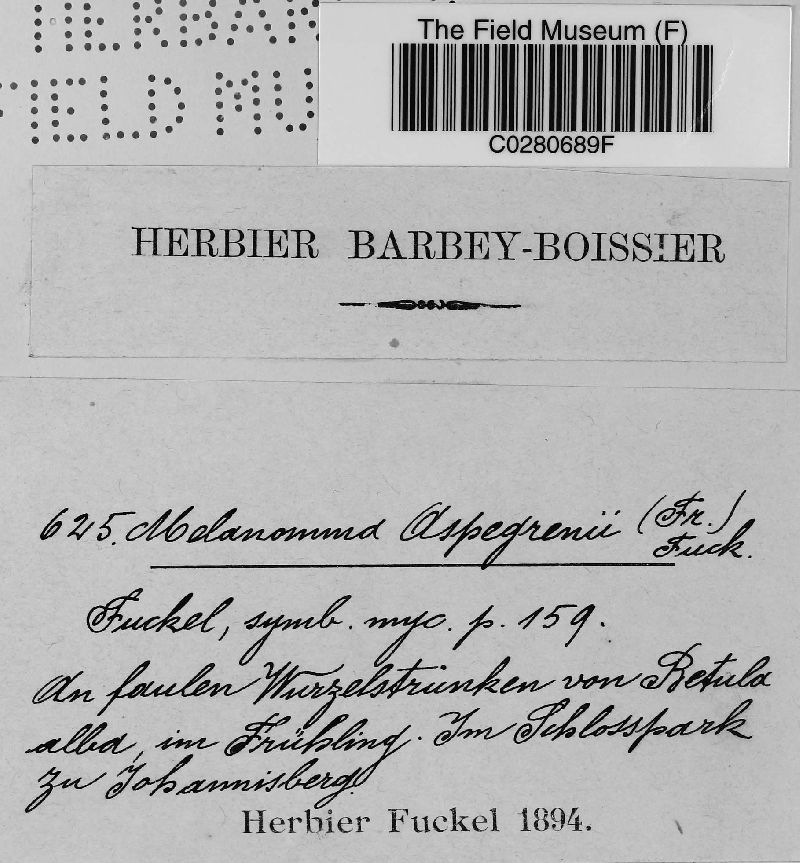 HERBAR
The Field Museum (F)
FIELD MU
C0280689F
HERBIER BARBEY-BOISSIER
625. Melanomma Aspegrenii (Fr.)
Fuck.
Fuckel, symb. myc. p. 159.
An faulen Wurzelstrünken von Betula
alba, im Frühling. Im Schlosspark
zu Johannisberg.
Herbier Fuckel 1894.